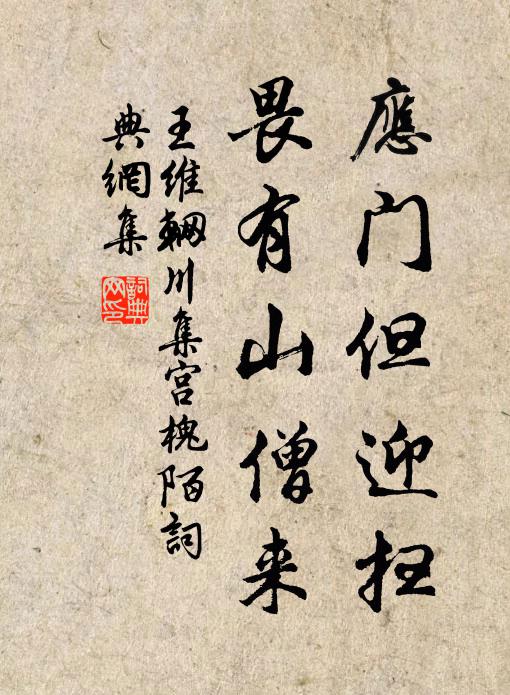 應门但迎扫
畏有山僧来
王维輞川集宫槐陌詞
典網集
詞典
网印